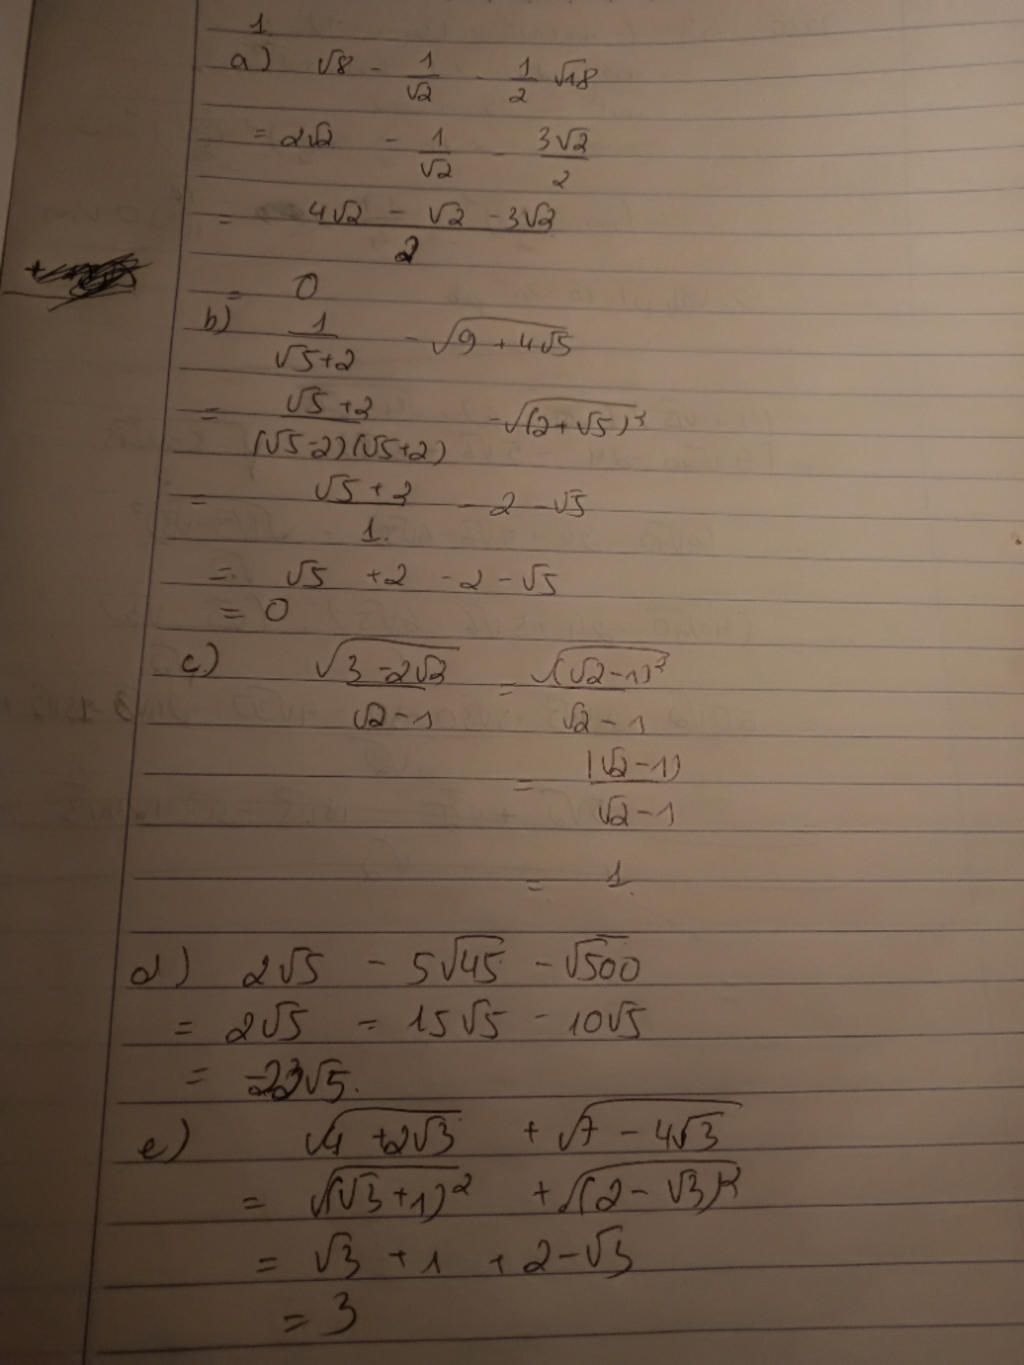 1.
a) √8 - 1/√2 - 1/2 √18
= 2√2 - 1/√2 - 3√2/2
= (4√2 - √2 - 3√2)/2
= 0
b) 1/(√5+2) - √(9+4√5)
= (√5+2)/((√5-2)(√5+2)) - √((2+√5)²)
= (√5+2)/1. - 2 - √5
= √5 + 2 - 2 - √5
= 0
c) √(3-2√2)/(√2-1) = √((√2-1)²)/(√2-1)
= |√2-1)/(√2-1)
= 1.
d) 2√5 - 5√45 - √500
= 2√5 - 15√5 - 10√5
= -23√5.
e) √(4+2√3) + √(7-4√3)
= √((√3+1)²) + √((2-√3)²)
= √3 + 1 + 2 - √3
= 3